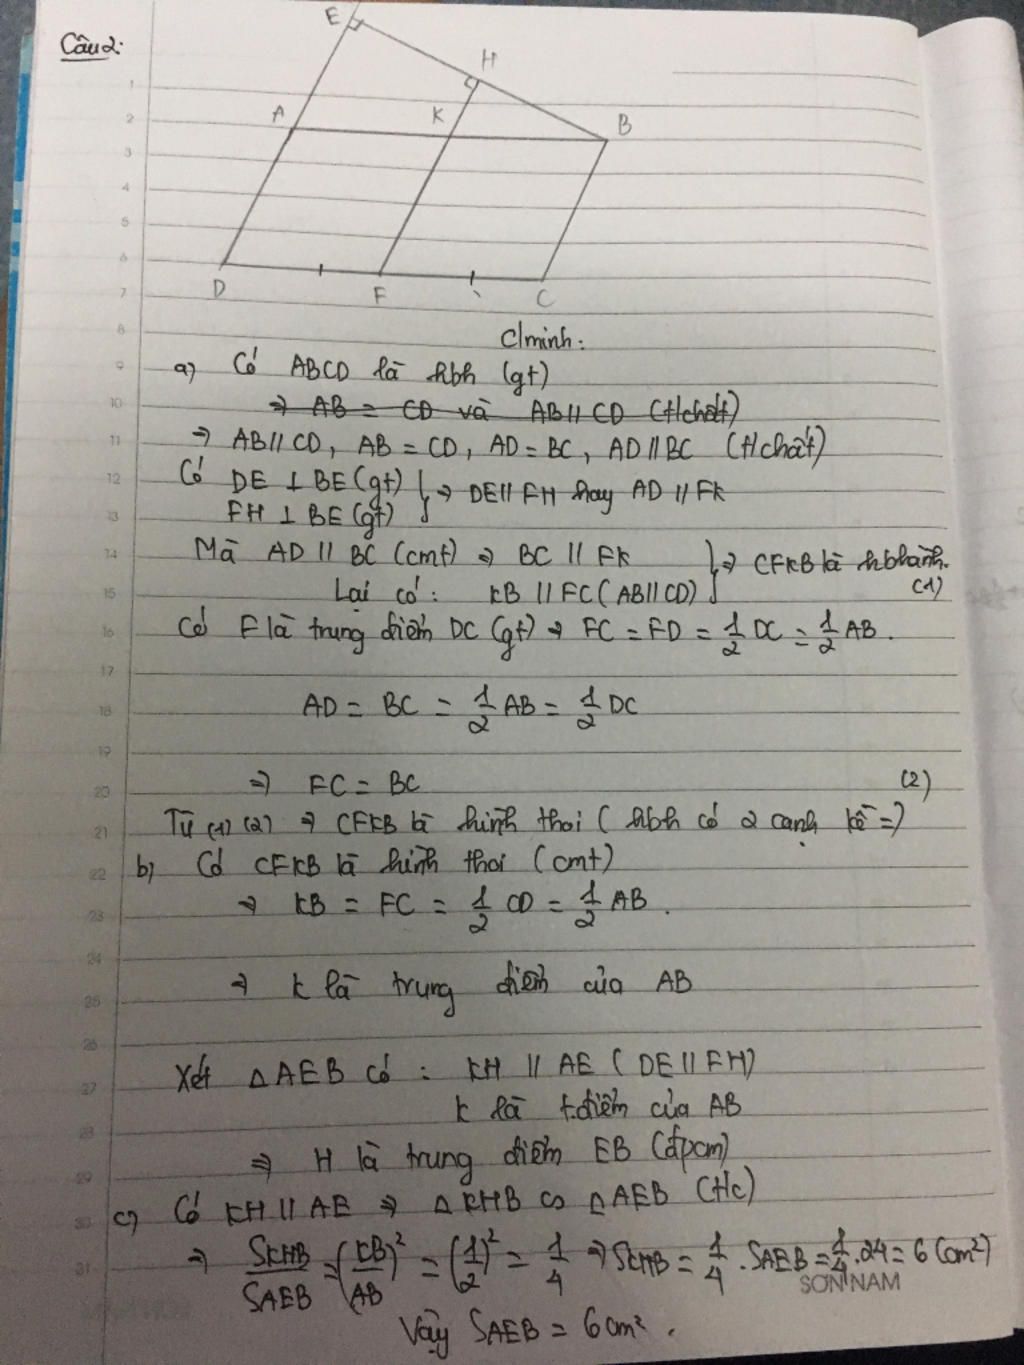 Câu 2:
E
H
A
K
B
D
F
C
C/minh:
a) Có ABCD là hbh (gt)
⇒ AB = CD và AB // CD (t/chất)
⇒ AB // CD, AB = CD, AD = BC, AD // BC (t/chất)
Có DE ⊥ BE (gt) } ⇒ DE // FH hay AD // FK
FH ⊥ BE (gt)
Mà AD // BC (cmt) ⇒ BC // FK } ⇒ CFKB là hbhành.
Lại có: KB // FC (AB // CD) (1)
Có F là trung điểm DC (gt) ⇒ FC = FD = 1/2 DC = 1/2 AB.
AD = BC = 1/2 AB = 1/2 DC
⇒ FC = BC (2)
Từ (1) (2) ⇒ CFKB là hình thoi (hbh có 2 cạnh kề =)
b) Có CFKB là hình thoi (cmt)
⇒ KB = FC = 1/2 CD = 1/2 AB.
⇒ K là trung điểm của AB
Xét △AEB có: KH // AE (DE // FH)
K là t.điểm của AB
⇒ H là trung điểm EB (đpcm)
c) Có KH // AE ⇒ △KHB ∽ △AEB (t/c)
⇒ SKHB/SAEB = (KB/AB)² = (1/2)² = 1/4 ⇒ SKHB = 1/4 . SAEB = 1/4 . 24 = 6 (cm²)
SƠN NAM
Vậy SAEB = 6cm².
1
2
3
4
5
6
7
8
9
10
11
12
13
14
15
16
17
18
19
20
21
22
23
24
25
26
27
28
29
30
31